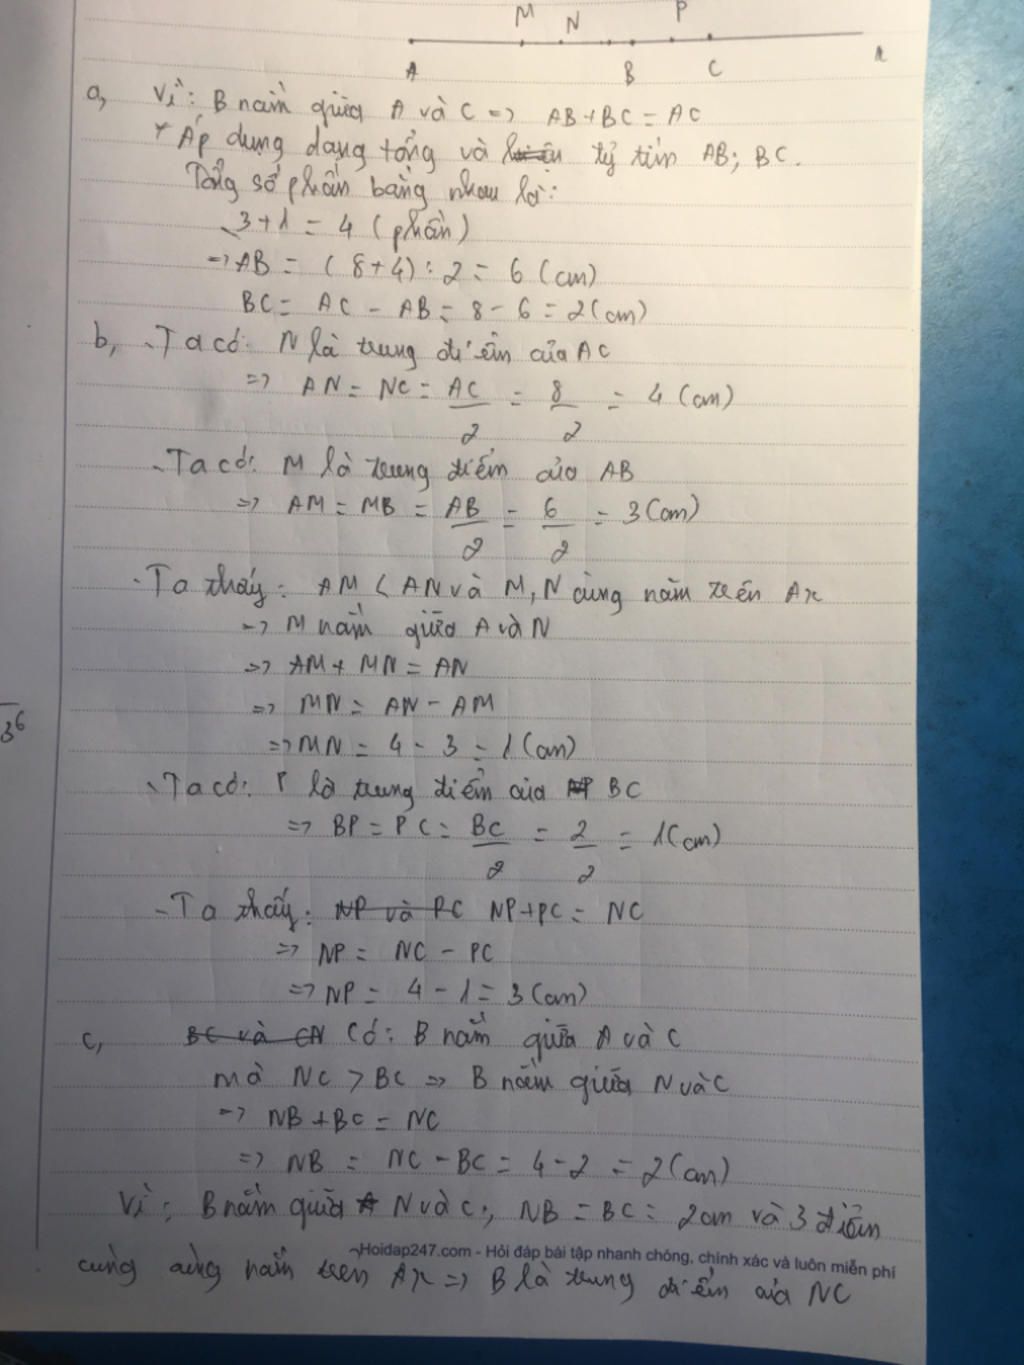 M N P
A B C x
a, Vì: B nằm giữa A và C => AB + BC = AC
+ Áp dụng dạng tổng và tỷ tìm AB; BC.
Tổng số phần bằng nhau là:
3 + 1 = 4 (phần)
=> AB = (8 + 4) : 2 = 6 (cm)
BC = AC - AB = 8 - 6 = 2 (cm)
b, - Ta có: N là trung điểm của AC
=> AN = NC = AC/2 = 8/2 = 4 (cm)
- Ta có: M là trung điểm của AB
=> AM = MB = AB/2 = 6/2 = 3 (cm)
- Ta thấy: AM < AN và M, N cùng nằm trên Ax
=> M nằm giữa A và N
=> AM + MN = AN
=> MN = AN - AM
36
=> MN = 4 - 3 = 1 (cm)
- Ta có: P là trung điểm của NP BC
=> BP = PC = BC/2 = 2/2 = 1 (cm)
- Ta thấy: NP và PC NP + PC = NC
=> NP = NC - PC
=> NP = 4 - 1 = 3 (cm)
c, BC và CN Có: B nằm giữa A và C
mà NC > BC => B nằm giữa N và C
=> NB + BC = NC
=> NB = NC - BC = 4 - 2 = 2 (cm)
Vì: B nằm giữa A N và C; NB = BC = 2cm và 3 điểm
Hoidap247.com - Hỏi đáp bài tập nhanh chóng, chính xác và luôn miễn phí
cùng cùng nằm trên Ax => B là trung điểm của NC